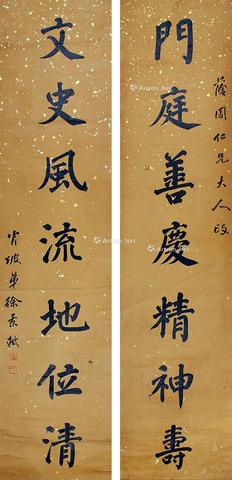 蔭周仁兄大人政
門庭善慶精神壽
文史風流地位清
肖坡弟徐景軾